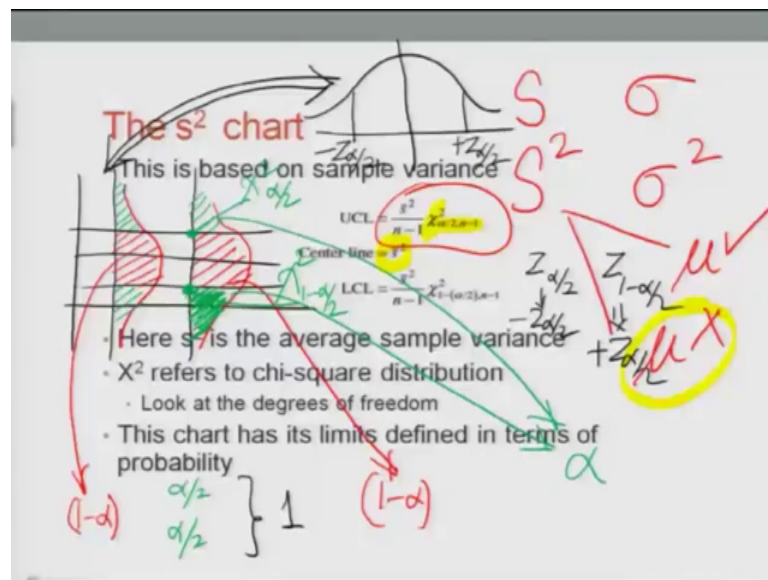 S σ
The s² chart
-Zα/2 +Zα/2
This is based on sample variance
S² σ²
χ²α/2
UCL = s²/(n-1) χ²α/2,n-1
Center line = s²
χ²1-α/2
LCL = s²/(n-1) χ²1-(α/2),n-1
Zα/2 Z1-α/2 μ ✓
-Zα/2 +Zα/2 μ X
• Here s² is the average sample variance
• X² refers to chi-square distribution
• Look at the degrees of freedom
• This chart has its limits defined in terms of
probability
α
(1-α) α/2 } 1 (1-α)
α/2